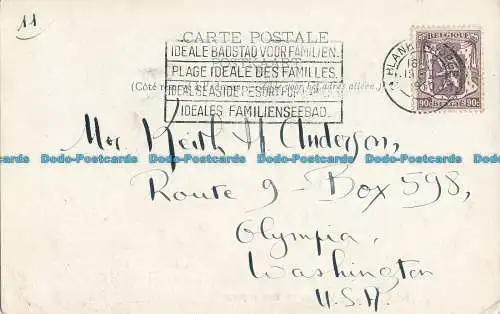 11
CARTE POSTALE
POSTKAART
IDEALE BADSTAD VOOR FAMILIEN.
PLAGE IDEALE DES FAMILLES.
IDEAL SEASIDE RESORT FOR
IDEALES FAMILIENSEEBAD.
(Côté réservé à l'adresse
voor het adres alleen.)
BELGIQUE
90c BELGIË 90c
BLANKENBERGE
Mr. Keith H. Anderson,
Route 9 - Box 598,
Olympia,
Washington
U.S.A.
Dodo-Postcards Dodo-Postcards Dodo-Postcards Dodo-Postcards Dodo-Postcards